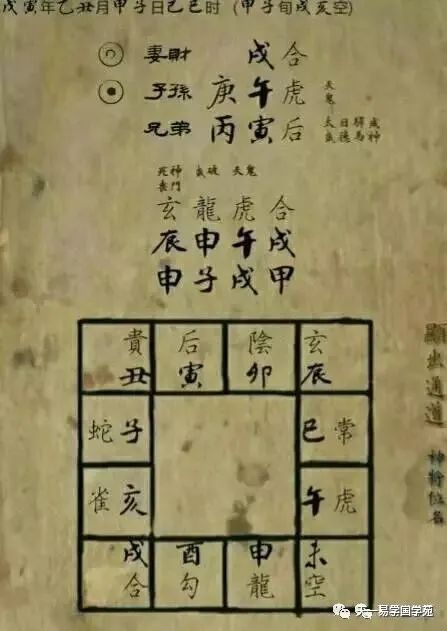 戊寅年乙丑月甲子日己巳时（甲子旬戌亥空）
妻財 戌合
子孫 庚午虎 天鬼
兄弟 丙寅后 大歲 日德 驛馬 成神
死神 喪門 歲破 天鬼
玄龍虎合
辰申午戌
申子戌甲
貴丑 后寅 陰卯 玄辰
蛇子 巳常
雀亥 午虎
戌合 酉勾 申龍 未空
顯出通道
神將位名
易学国学苑